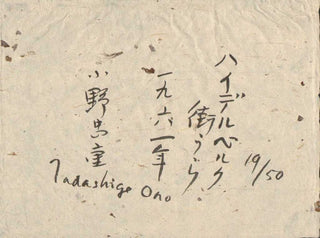 ハイデルベルク
街うら
19/50
一九六一年
小野忠重
Tadashige Ono